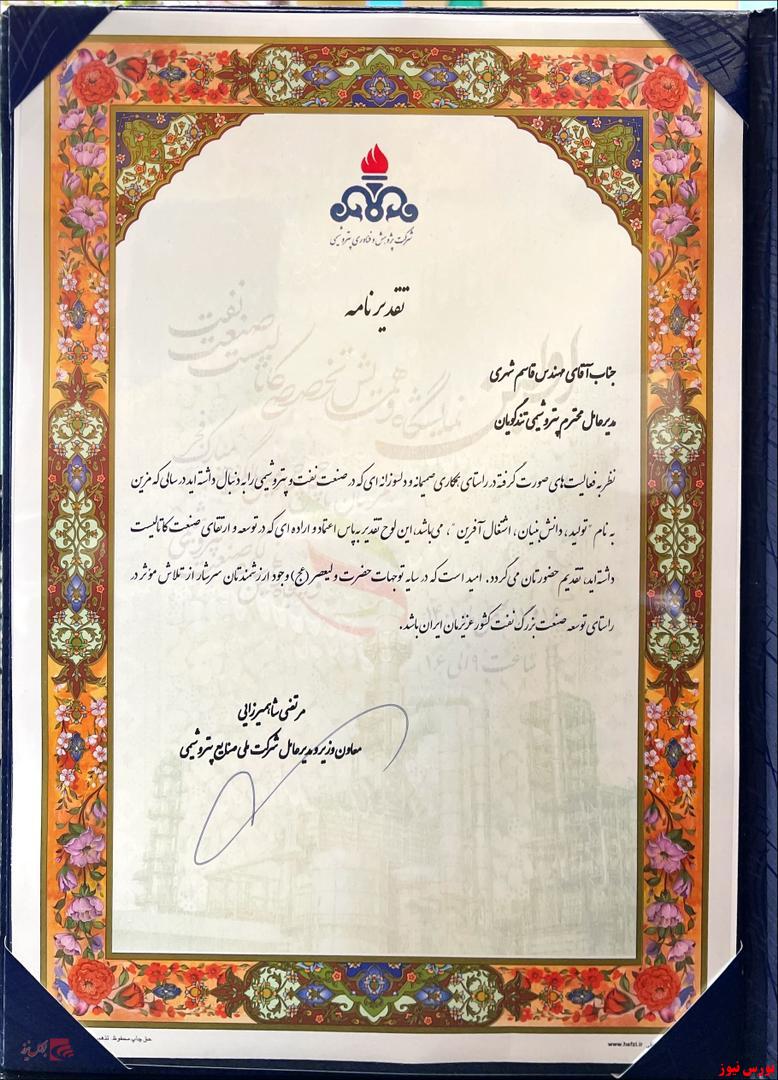 شرکت پژوهش و فناوری پتروشیمی
تقدیرنامه
جناب آقای مهندس قاسم شهری
مدیرعامل محترم پتروشیمی تندگویان
نظر به فعالیت‌های صورت گرفته در راستای همکاری صمیمانه و دلسوزانه ای که در صنعت نفت و پتروشیمی را به دنبال داشته اید در سالی که مزین
به نام "تولید، دانش بنیان، اشتغال آفرین"، می‌باشد، این لوح تقدیر به پاس اعتماد و اراده ای که در توسعه و ارتقای صنعت کاتالیست
داشته‌اید، تقدیم حضورتان می گردد. امید است که در سایه توجهات حضرت ولیعصر (عج) وجود ارزشمندتان سرشار از تلاش مؤثر در
راستای توسعه صنعت بزرگ نفت کشور عزیزمان ایران باشد.
اولین نمایشگاه و همایش تخصصی کاتالیست صنعت نفت
ساعت ۹ الی ۱۶
مرتضی شاهمیرزایی
معاون وزیر و مدیرعامل شرکت ملی صنایع پتروشیمی
حق چاپ محفوظ
www.hafzi.ir
بورس نیوز